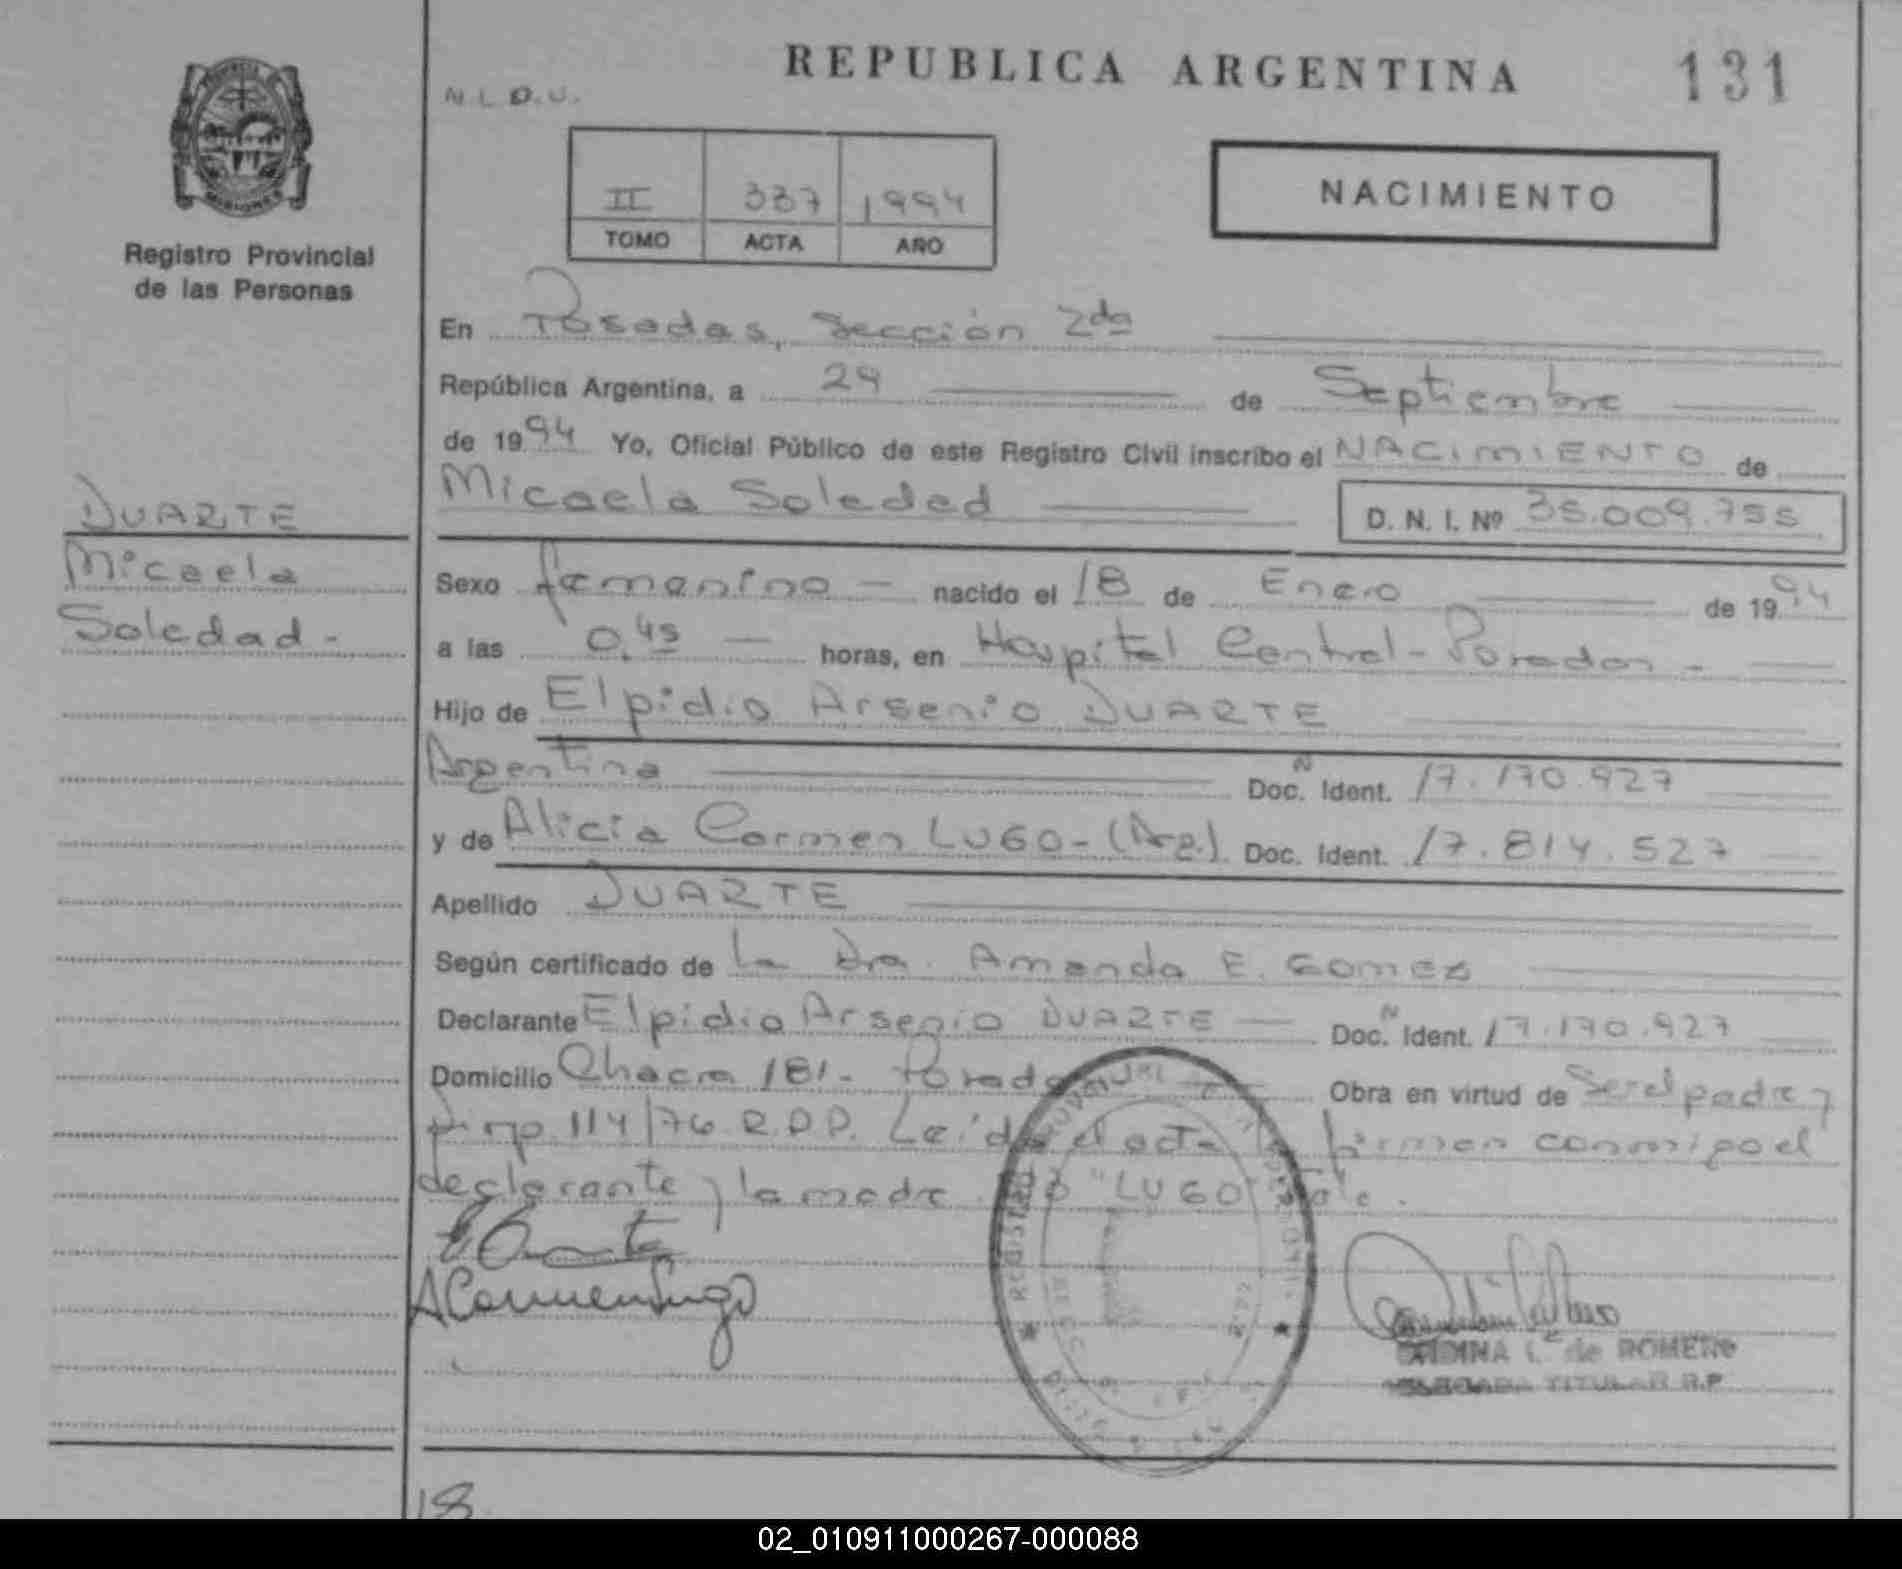 REPUBLICA ARGENTINA
131
N.L.D.U.
II 337 1994
TOMO ACTA AÑO
NACIMIENTO
MISIONES
Registro Provincial
de las Personas
En Posadas, Sección 2da
República Argentina, a 29 de Septiembre
de 1994 Yo, Oficial Público de este Registro Civil inscribo el NACIMIENTO de
Micaela Soledad D. N. I. Nº 35.009.755
DUARTE
Micaela
Soledad -
Sexo femenino - nacido el 18 de Enero de 1994
a las 0,45 - horas, en Hospital Central - Posadas -
Hijo de Elpidio Arsenio DUARTE
Argentina Doc. N Ident. 17.170.927
y de Alicia Carmen LUGO - (Arg.) Doc. Ident. 17.814.527
Apellido DUARTE
Según certificado de la Dra. Amanda E. Gomez
Declarante Elpidio Arsenio DUARTE - Doc. N Ident. 17.170.927
Domicilio Chacra 181 - Posadas Obra en virtud de Ser el padre y
114/76 R.P.P. Leída el acta firman conmigo el
declarante y la madre. "LUGO" Vale.
ACarmenLugo
de ROMERO
TITULAR R.P.
18
02_010911000267-000088